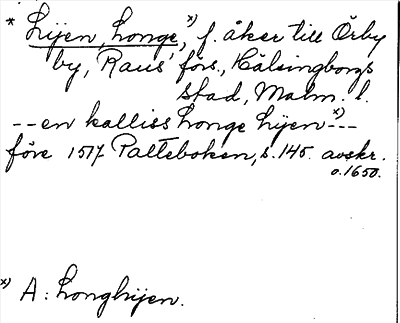 * Lyen, Longe, x) f. åker till Örby
by, Raus' förs., Hälsingborgs
stad, Malm. l.
--en kalliss Longe Lyen x)---
före 1517 Palteboken, s. 145. avskr.
o. 1650.
x) A: Longhijen.